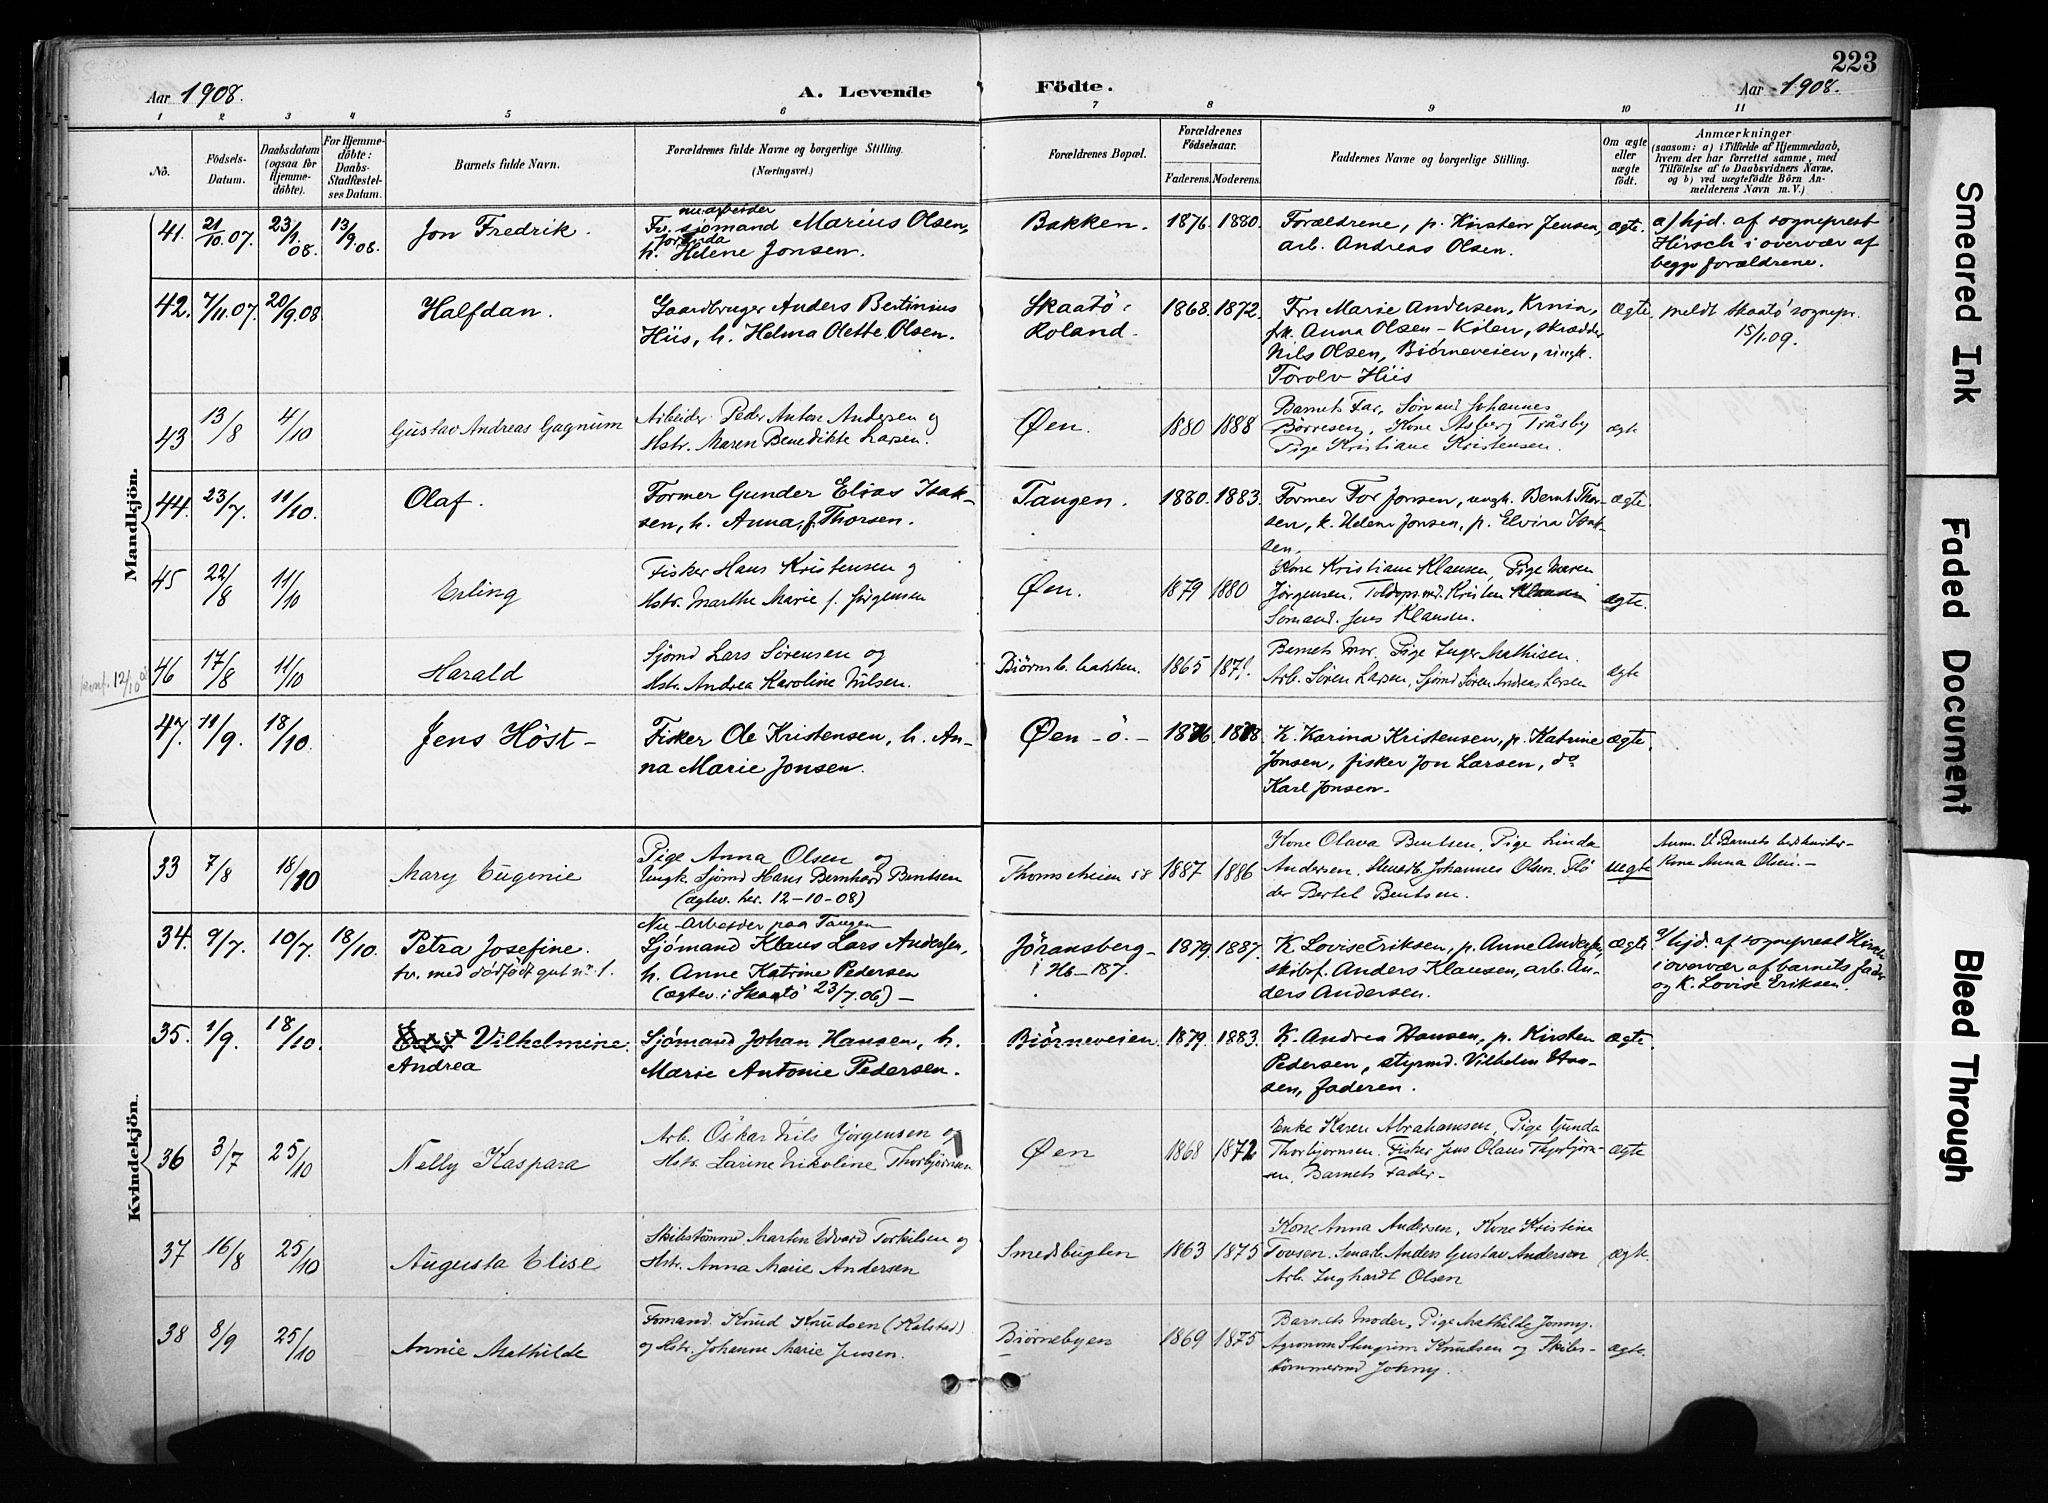 223
Aar 1908.
A. Levende
Födte.
Aar 1908.
1 2 3 4 5 6 7 8 9 10 11
No.
Födsels-Datum.
Daabsdatum (ogsaa for Hjemmedöbte).
For Hjemmedöbte: Daabs-Stadfæstelses Datum.
Barnets fulde Navn.
Forældrenes fulde Navne og borgerlige Stilling. (Næringsvei.)
Forældrenes Bopæl.
Forældrenes Födselsaar.
Faderens. Moderens.
Faddernes Navne og borgerlige Stilling.
Om ægte eller uægte födt.
Anmærkninger (saasom: a) i Tilfælde af Hjemmedaab, hvem der har forrettet samme, med Tilföielse af to Daabsvidners Navne. og b) ved uægtefödte Börn Anmelderens Navn m. V.)
Mandkjön.
41. 21/10.07. 23/1 08. 13/9.08. Jon Fredrik.
nu arbeider
Fv. sjömand Marius Olsen,
h. Helene Jonsen.
Bakken. 1876. 1880.
Forældrene, p. Kirsten Jensen,
arb. Andreas Olsen.
ægte.
a/ hjd. af sogneprest
Hirsch i overvær af
begge forældrene.
42. 7/11.07. 20/9.08 Halfdan.
Gaardbruger Anders Bertinius
Hiis, h. Helma Olette Olsen.
Skaatö
Roland.
1868. 1872.
Fru Marie Andersen,
frk. Anna Olsen - Kilen, skrædder
Nils Olsen, Björneveien, ungk.
Torolv Hiis
Ægte. meldt Skaatö sognepr.
15/1.09.
43 13/8 4/10 Gustav Andreas Gagnum
Arbeider Peder Anton Andersen og
Hstr. Maren Benedikte Larsen.
Øen. 1880 1888
Barnets Far, Sømand Johannes
Børresen, Kone Asberg Tråsby
Pige Kristiane Kristensen.
ægte
44. 23/7. 11/10. Olaf.
Former Gunder Elias Isak-
sen, h. Anna, f. Thorsen.
Tangen. 1880. 1883.
Former Tor Jonsen, ungk. Bernt Thor-
sen, k. Helene Jonsen, p. Elvira Isak-
sen.
Ægte.
45 22/8 11/10 Erling
Fisker Hans Kristensen og
Hstr. Marthe Marie f. Jørgensen
Øen. 1879 1880
Kone Kristiane Klausen, Pige Maren
Jørgensen, Toldops.md. Kristen Klausen
Sømand. Jens Klausen.
ægte.
46 17/8 11/10 Harald
konf. 12/10
Sjømd Lars Sørensen og
Hstr. Andrea Karoline Nilsen.
Bjørneb. bakken. 1865
Barnets Mor. Pige Inger Mathisen.
Arb. Søren Larsen, Sjømd Søren Andreas Larsen
ægte
47. 11/9. 18/10. Jens Höst -
Fisker Ole Kristensen, h. An-
na Marie Jonsen.
Øen - ö. - 1876. 1878.
K. Karina Kristensen, p. Katrine
Jonsen, fisker Jon Larsen, do
Karl Jonsen.
ægte.
Kvindekjön.
33 7/8 18/10 Mary Eugenie
Pige Anna Olsen og
Ungk. Sjømd Hans Bernhard Bentsen
(ægtev. her. 12-10-08)
Thomesheien 58 1887 1886
Kone Olava Bentsen, Pige Linda
Andersen, Johannes Olsen. Flö
der Bertel Bentsen.
uægte
Anm. Barnets
Kone Anna Olsen. -
34. 9/7. 10/7. 18/10. Petra Josefine.
tv. med dödfödt gut no 1.
Nu arbeider paa Tangen
Sjömand Klaus Lars Andersen,
h. Anne Katrine Pedersen
(ægtev. i Skaatö 23/7.06) -
Jöransberg-
Hb - 187.
1879. 1887.
K. Lovise Eriksen, p. Anne Andersen,
skibsf. Anders Klausen, arb. An-
ders Andersen.
ægte
a/ hjd. af sogneprest Hirsch
i overvær af barnets fader
og k. Lovise Eriksen.
35. 1/9. 18/10. Vilhelmine.
Andrea
Sjömand Johan Hansen, h.
Marie Antonie Pedersen.
Björneveien. 1879. 1883.
K. Andrea Hansen, p. Kirsten
Pedersen, styrmd. Vilhelm Han-
sen, faderen.
Ægte.
36 3/7 25/10 Nelly Kaspara
Arb. Oskar Nils Jørgensen og
Hstr. Larine Nikoline Thorbjørnsen
Øen 1868 1872
Enke Karen Abrahamsen, Pige Gunda
Thorbjornsen. Fisker Jens Olaus Thorbjørn-
sen. Barnets Fader -
ægte
37 16/8 25/10 Augusta Elise
Skibstømmd. Martin Edvard Torkilsen og
Hstr. Anna Marie Andersen
Smedsbugten 1863 1875
Kone Anna Andersen, Kone Kristine
Tovsen. Anders Gustav Andersen
Arb. Inghardt Olsen
ægte.
38 8/9 25/10 Annie Mathilde
Formand. Knud Knudsen (Kalstad)
og Hstr. Johanne Marie Jensen.
Bjørnebyen 1869 1875
Barnets Moder, Pige Mathilde Jonny.
Agronom Stengrim Knudsen og Skibs-
tømmermd Johny.
ægte.
Smeared Ink
Faded Document
Bleed Through